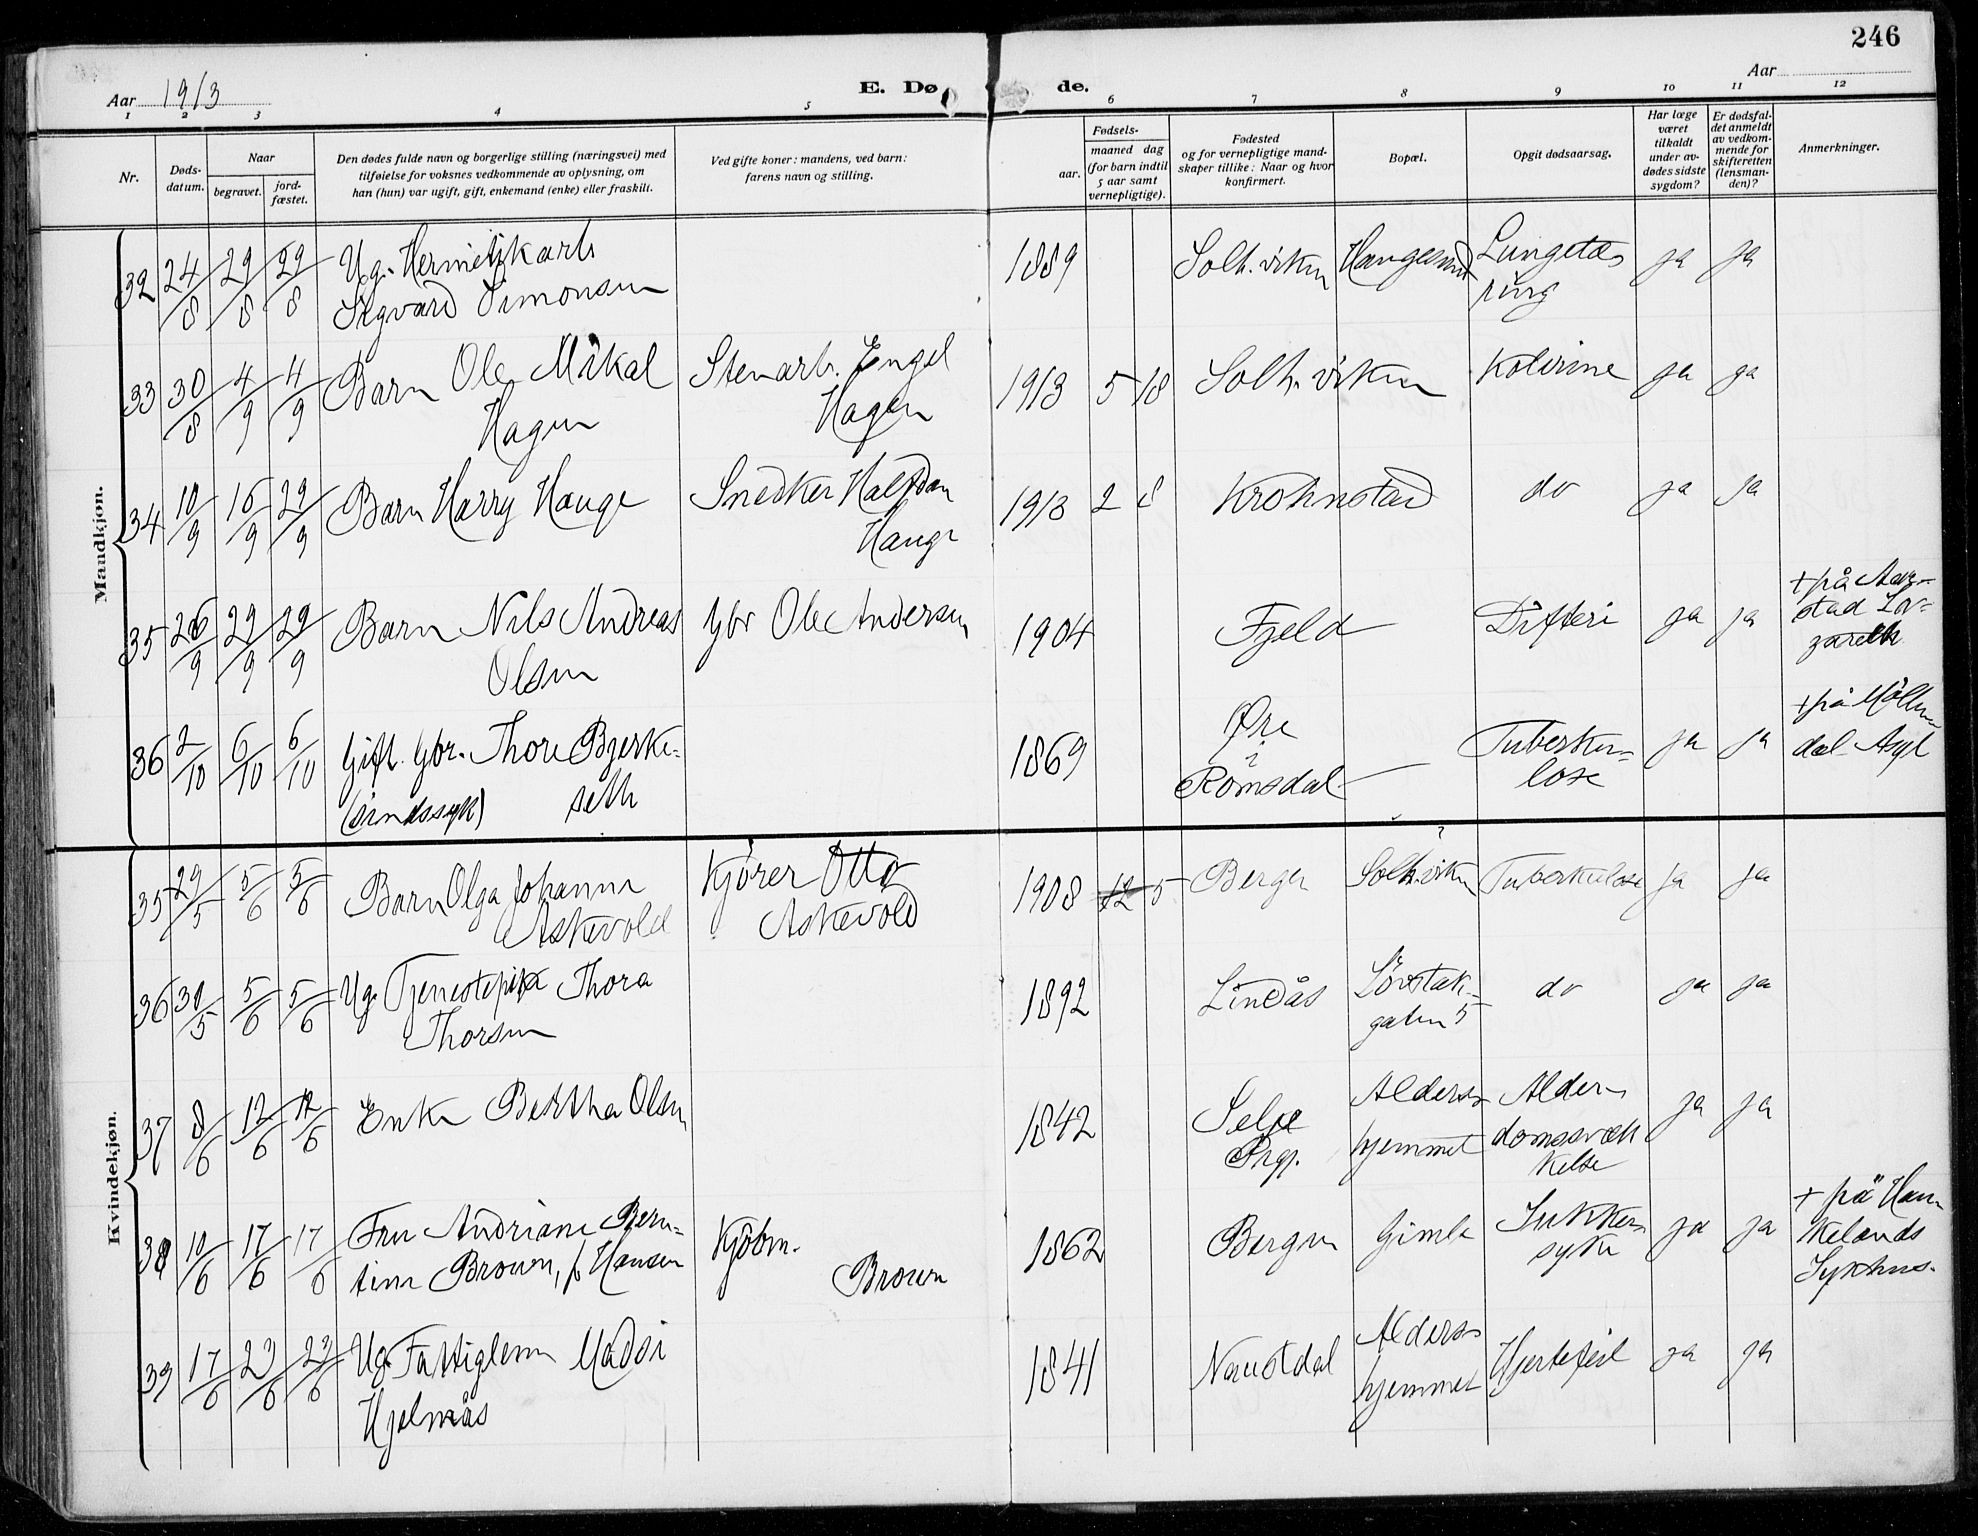 246
Aar 1913
E. Dø de.
Aar
1 2 3 4 5 6 7 8 9 10 11 12
Nr.
Døds-
datum.
Naar
begravet.
jord-
fæstet.
Den dødes fulde navn og borgerlige stilling (næringsvei) med
tilføielse for voksnes vedkommende av oplysning, om
han (hun) var ugift, gift, enkemand (enke) eller fraskilt.
Ved gifte koner: mandens, ved barn:
farens navn og stilling.
Fødsels-
aar.
maaned dag
(for barn indtil
5 aar samt
vernepligtige).
Fødested
og for vernepligtige mand-
skaper tillike: Naar og hvor
konfirmert.
Bopæl.
Opgit dødsaarsag.
Har læge
været
tilkaldt
under av-
dødes sidste
sygdom?
Er dødsfal-
det anmeldt
av vedkom-
mende for
skifteretten
(lensman-
den)?
Anmerkninger.
Mandkjøn.
32 24/8 29/8 29/8 Ug. Hermetikarb. 1889 Solh.viken Haugesund Lungetæ- ja ja
Sigvard Simonsen ring
33 30/8 4/9 4/9 Barn Ole Mikal Stenarb. Engel 1913 5 18 Solh.viken Kolerine ja ja
Hagen Hagen
34 10/9 16/9 29/9 Barn Harry Hauge Snedker Halfdan 1913 2 8 Krohnstad do ja ja
Hauge
35 26/9 29/9 29/9 Barn Nils Andreas Gbr Ole Andersen 1904 Fjeld Difteri ja ja + på Aar-
Olsen stad La-
zareth
36 2/10 6/10 6/10 Gift. Gbr. Thore Bjerke- 1869 Øre Tuberku- ja ja + på Møllen-
seth i lose dal Asyl
(sindssyk) Romsdal
Kvindekjøn.
35 29/5 5/6 5/6 Barn Olga Johanne Kjører Otto 1908 12 5 Bergen Solh.viken Tuberkulose ja ja
Askevold Askevold
36 30/5 5/6 5/6 Ug. Tjenestepike Thora 1892 Lindås Løvstak- do ja ja
Thorsen gaten 5
37 8/6 12/6 12/6 Enke Bertha Olsen 1842 Selje Alders- Alder- ja ja
Prgj. hjemmet domssvæk
kelse
38 10/6 17/6 17/6 Fru Andriane Bern- Kjøbm. 1862 Bergen Gimle Sukker- ja ja + på Hau-
tine Brown, f. Hansen Brown syke kelands
Sykehus.
39 17/6 23/6 23/6 Ug. Fattiglem Madsi 1841 Naustdal Alders- Hjertefeil ja ja
Hjelmås hjemmet